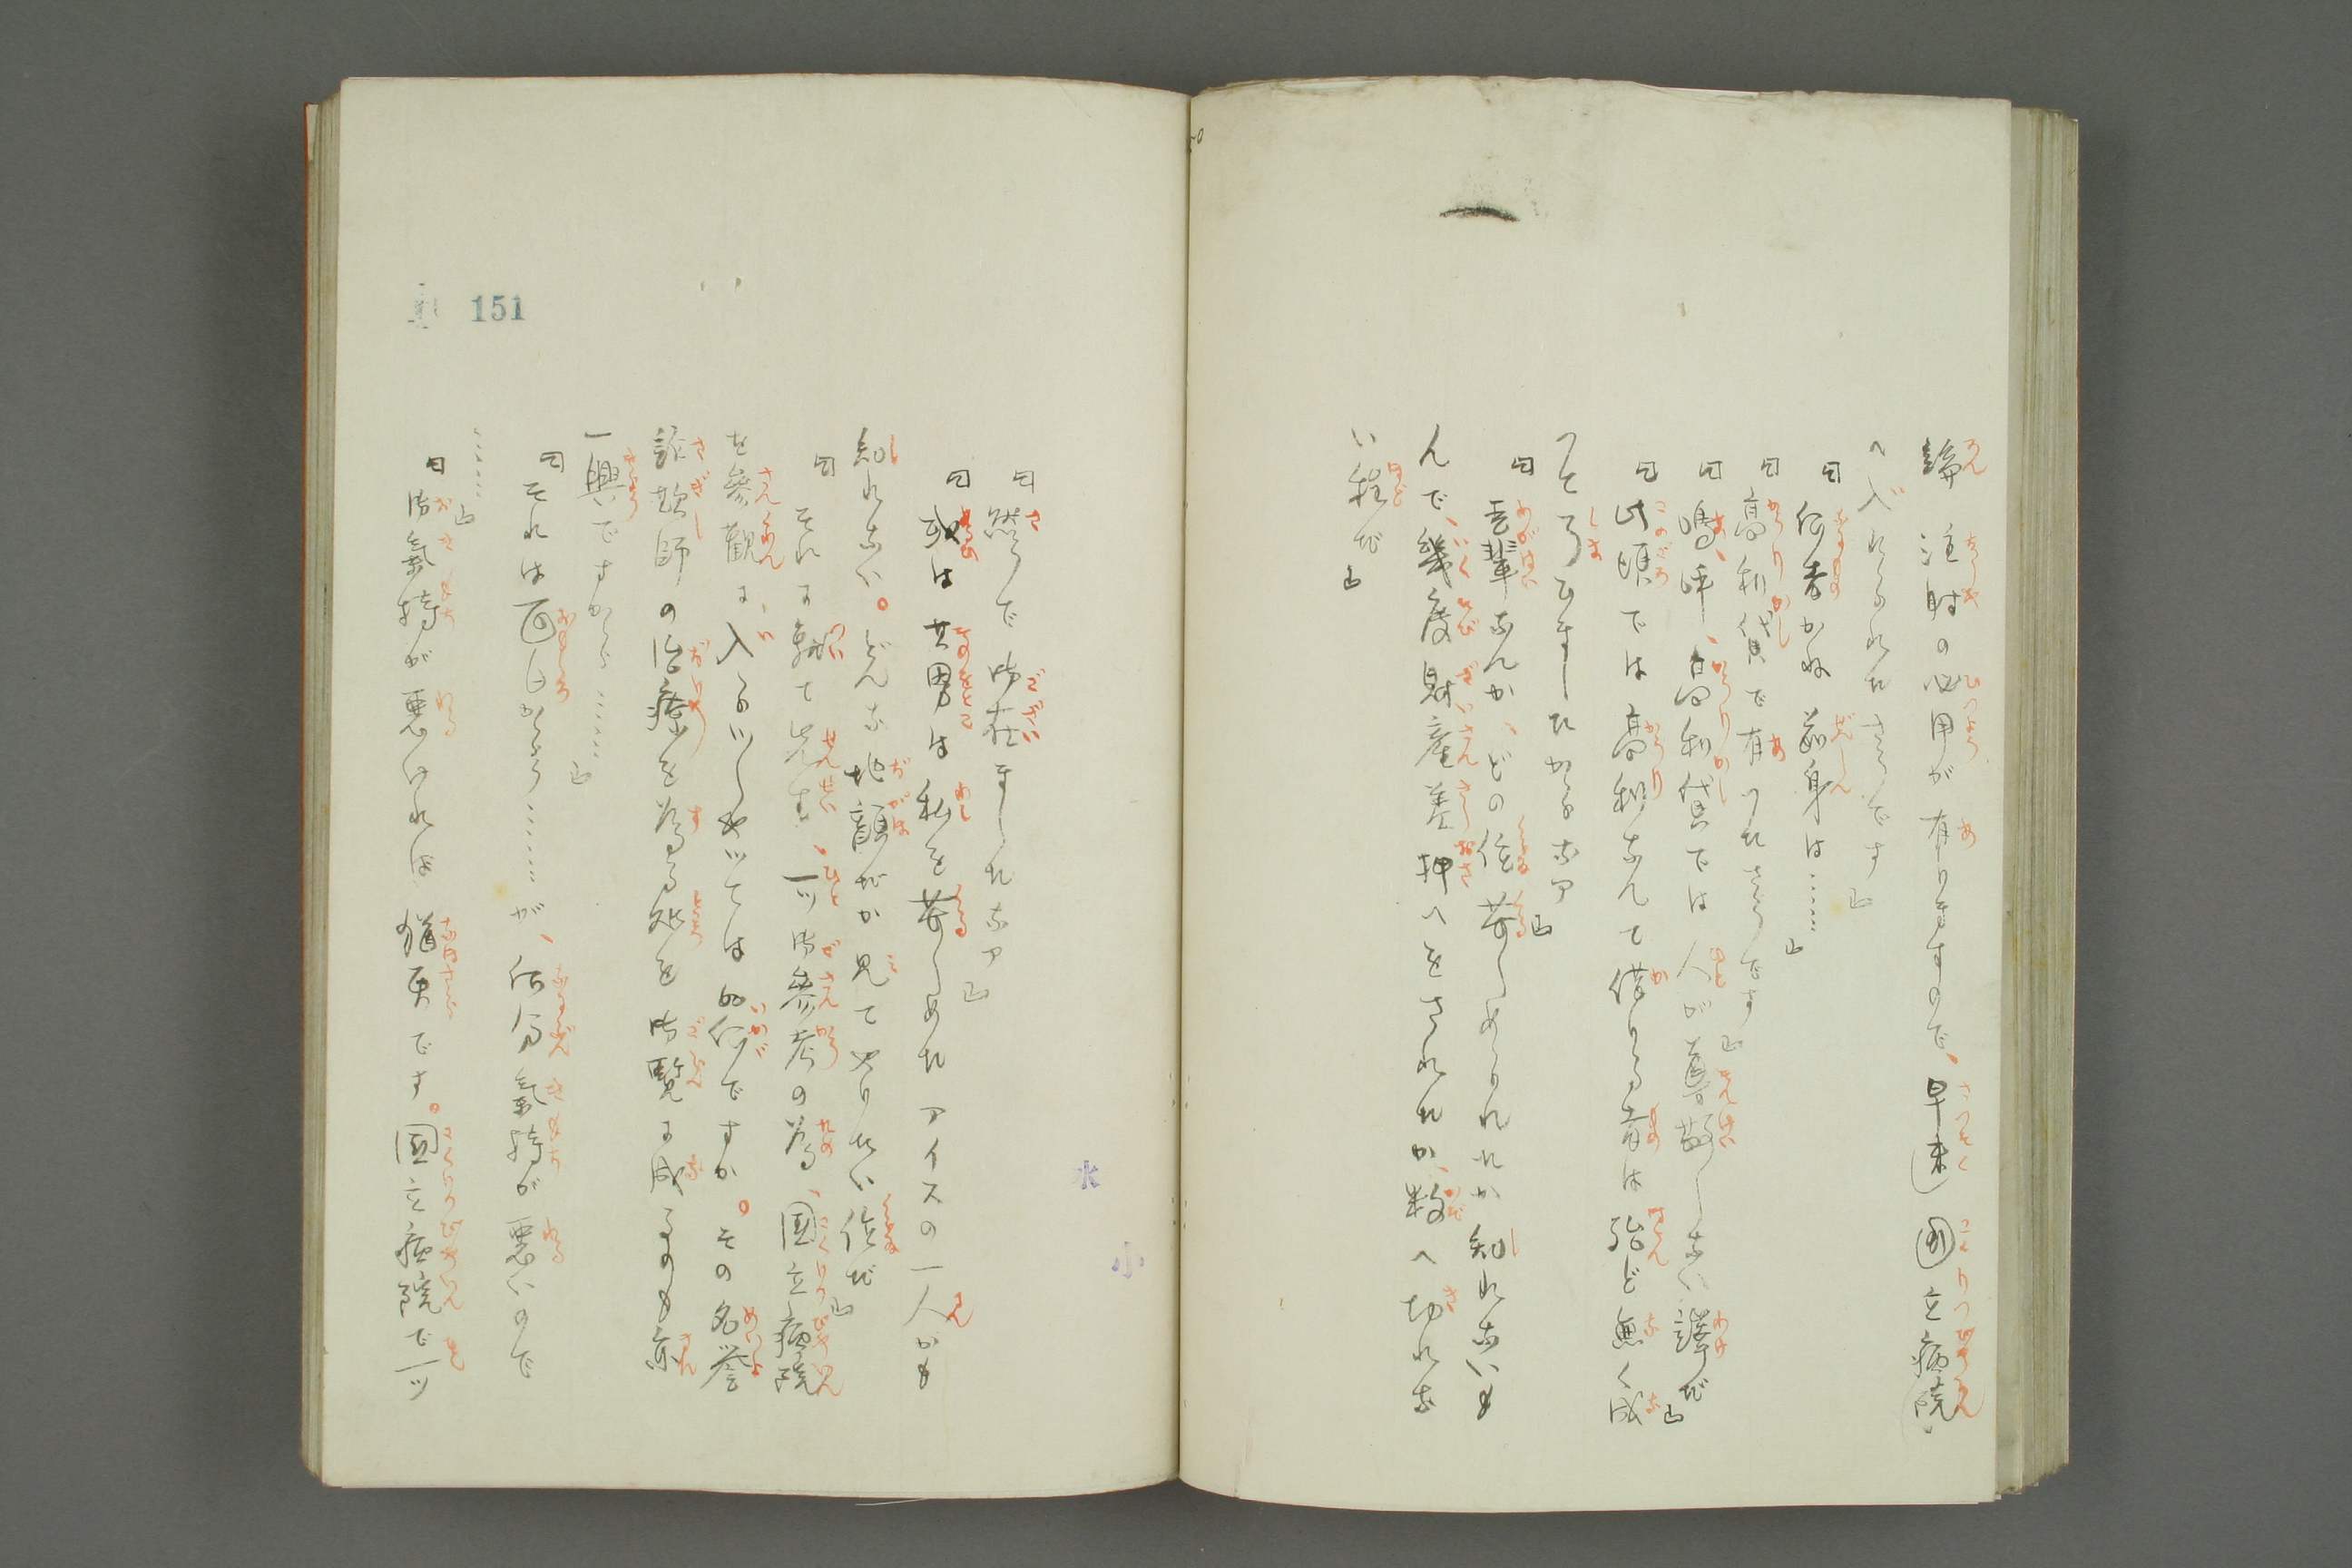 論 注射の必用が有りますので、早速 国立病院
へ入れられたさうです」
「何者かね 前身は……」
「高利貸で有つたさうです」
「嗚呼、高利貸では人が尊敬しない譯だ」
「此頃では高利なんて借りる者は殆ど無く成
つて了ひましたからなア」
「吾輩なんか、どの位苦しめられたか知れないも
んで、幾度財産差押へをされたか、数へ切れな
い程だ」
「然うで御在ましたなア」
「或は其男は私を苦しめたアイスの一人かも
知れない。どんな地顔だか見てやりたい位だ」
「それに就て先生、一ツ御參考の為、国立病院
を參観に入らつしやつては如何ですか。その名誉
詐欺師の治療を為る処を御覧に成るのも亦
一興ですから……」
「それは面白からう……が、何分氣持が悪いので
……」
「御氣持が悪ければ 猶更です。国立病院で一ツ
151
小